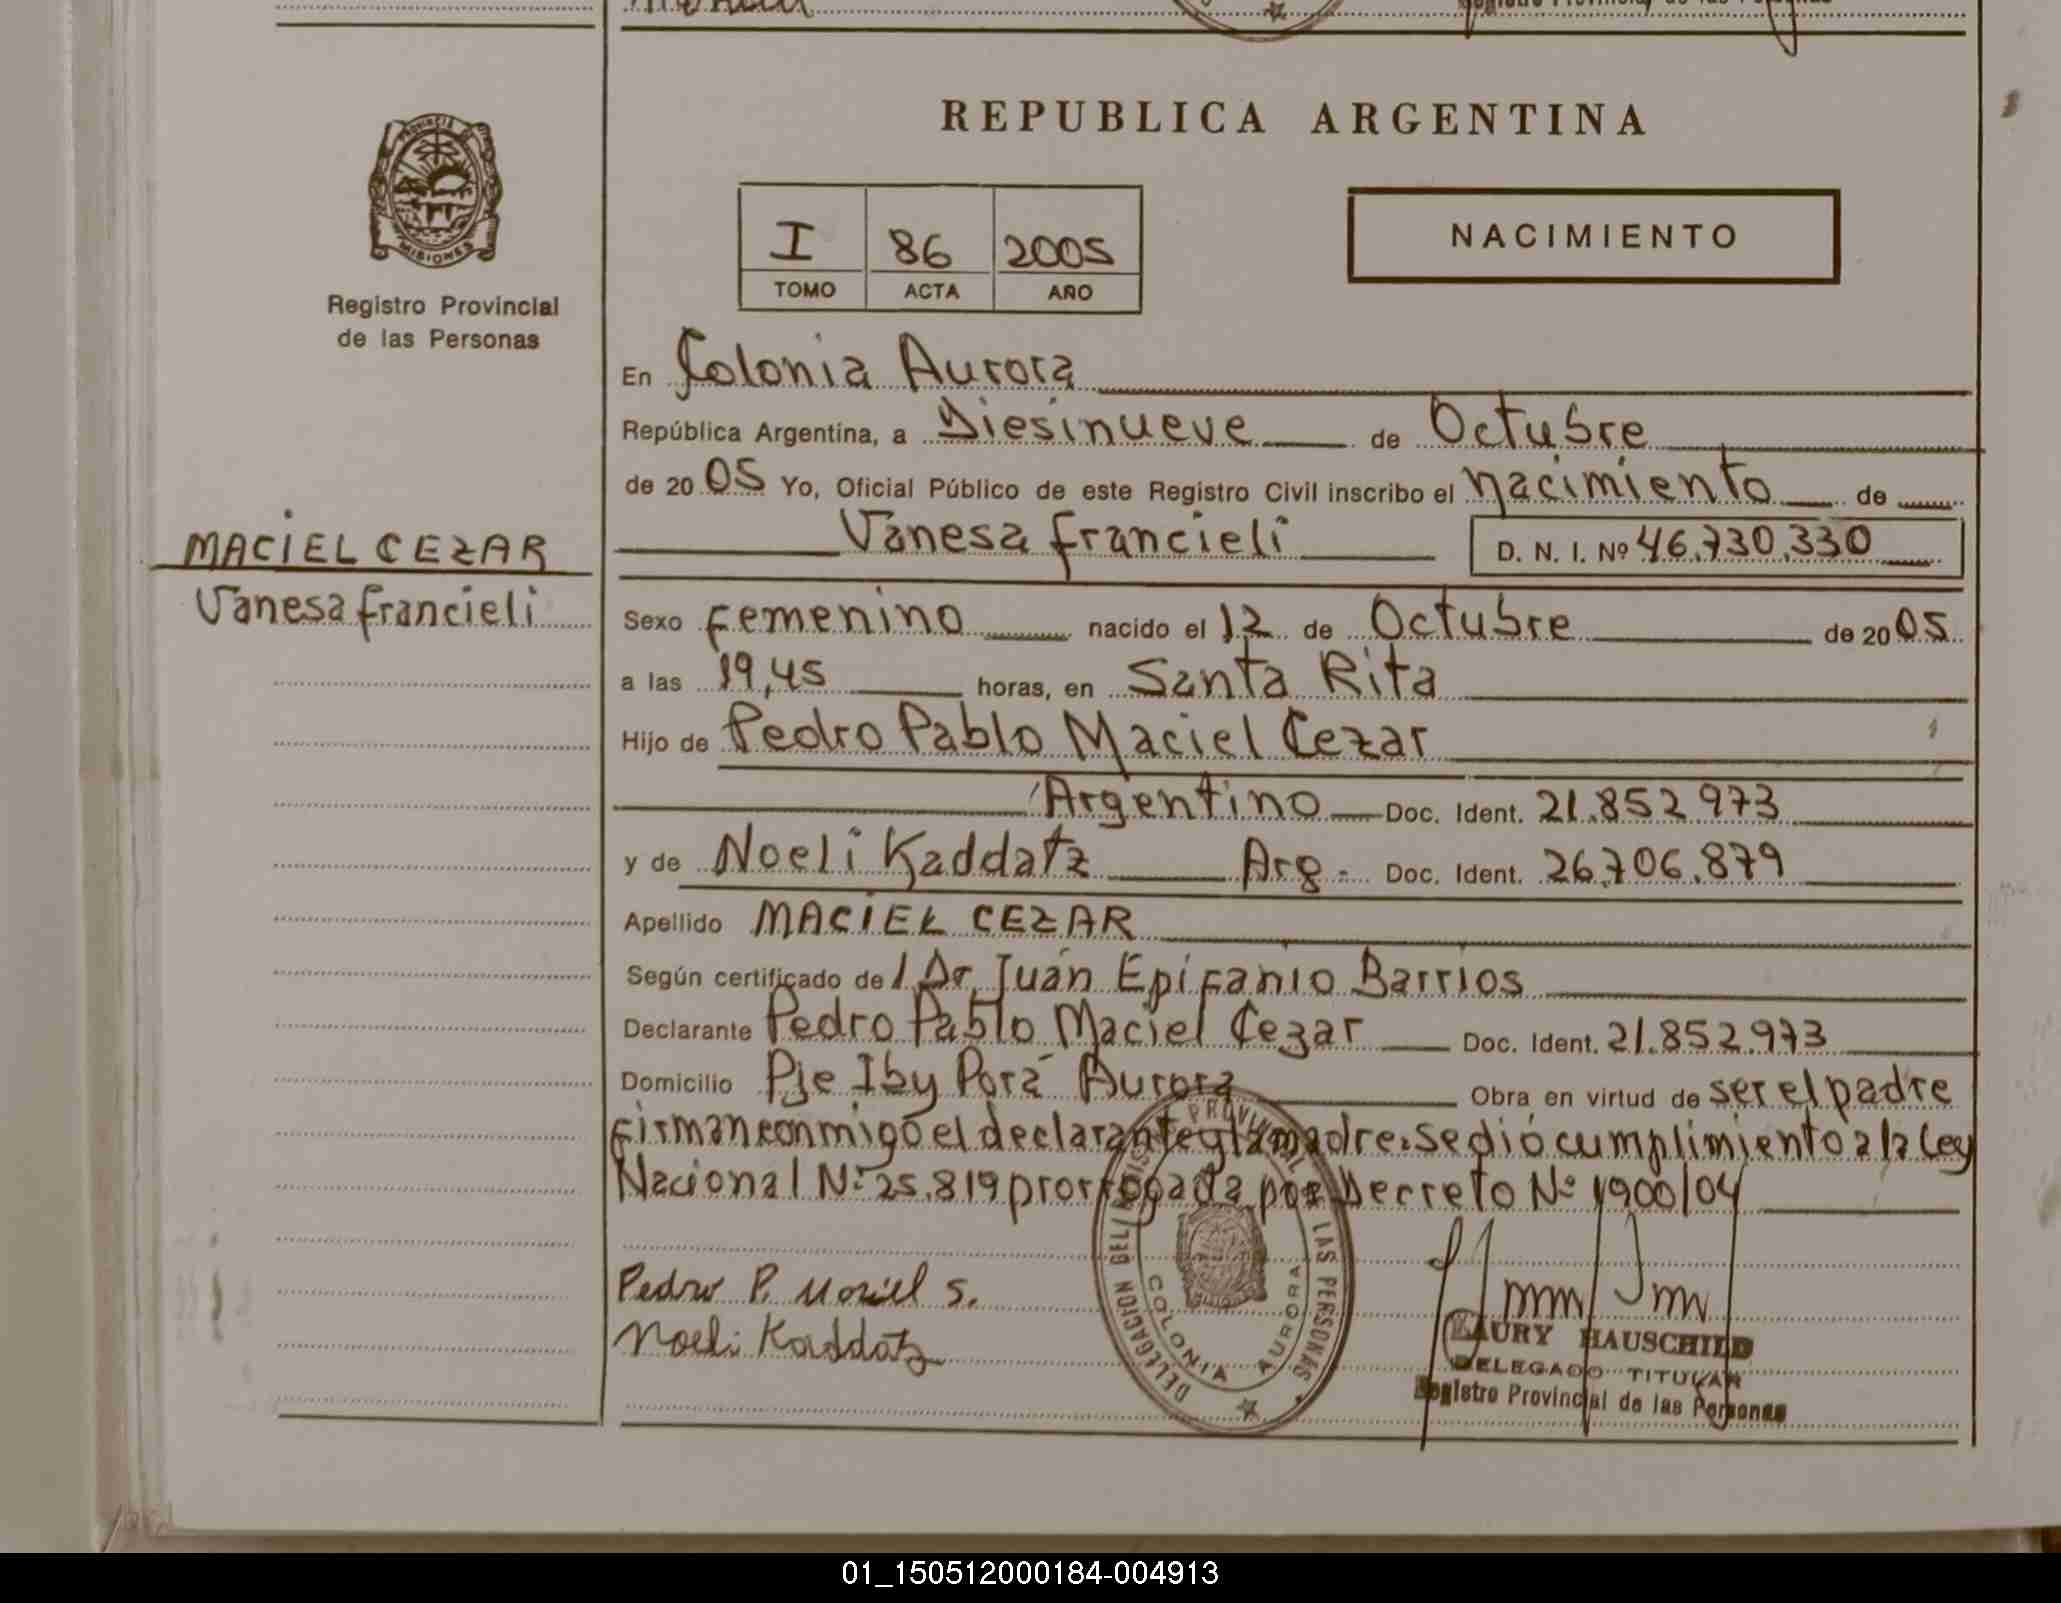 REPUBLICA ARGENTINA
PROVINCIA DE
MISIONES
Registro Provincial
de las Personas
I 86 2005
TOMO ACTA AÑO
NACIMIENTO
En Colonia Aurora
República Argentina, a Diesinueve de Octubre
de 20 05 Yo, Oficial Público de este Registro Civil inscribo el nacimiento de
MACIEL CEZAR
Vanesa Francieli
Vanesa Francieli D. N. I. Nº 46.730.330
Sexo Femenino nacido el 12 de Octubre de 20 05
a las 19,45 horas, en Santa Rita
Hijo de Pedro Pablo Maciel Cezar
Argentino Doc. Ident. 21.852.973
y de Noeli Kaddatz Arg. Doc. Ident. 26.706.879
Apellido MACIEL CEZAR
Según certificado de l Dr. Juán Epifanio Barrios
Declarante Pedro Pablo Maciel Cezar Doc. Ident. 21.852.973
Domicilio Pje Iby Porá Aurora Obra en virtud de ser el padre
firman conmigo el declarante y la madre. se dió cumplimiento a la Ley
Nacional Nº 25.819 prorrogada por Decreto Nº 1900/04
Pedro P. Maciel S.
Noeli Kaddatz
DELEGACION DEL REGISTRO PROVINCIAL DE LAS PERSONAS
COLONIA AURORA
LAURY HAUSCHILD
DELEGADO TITULAR
Registro Provincial de las Personas
01_150512000184-004913